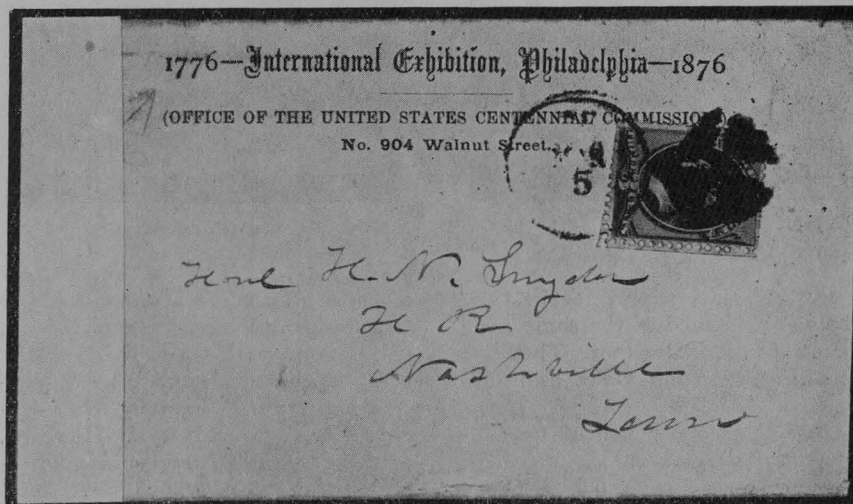 1776—International Exhibition, Philadelphia—1876
(OFFICE OF THE UNITED STATES CENTENNIAL COMMISSION)
No. 904 Walnut Street.
5
Honl H. N. Snyder
H R
Nashville
Tenn